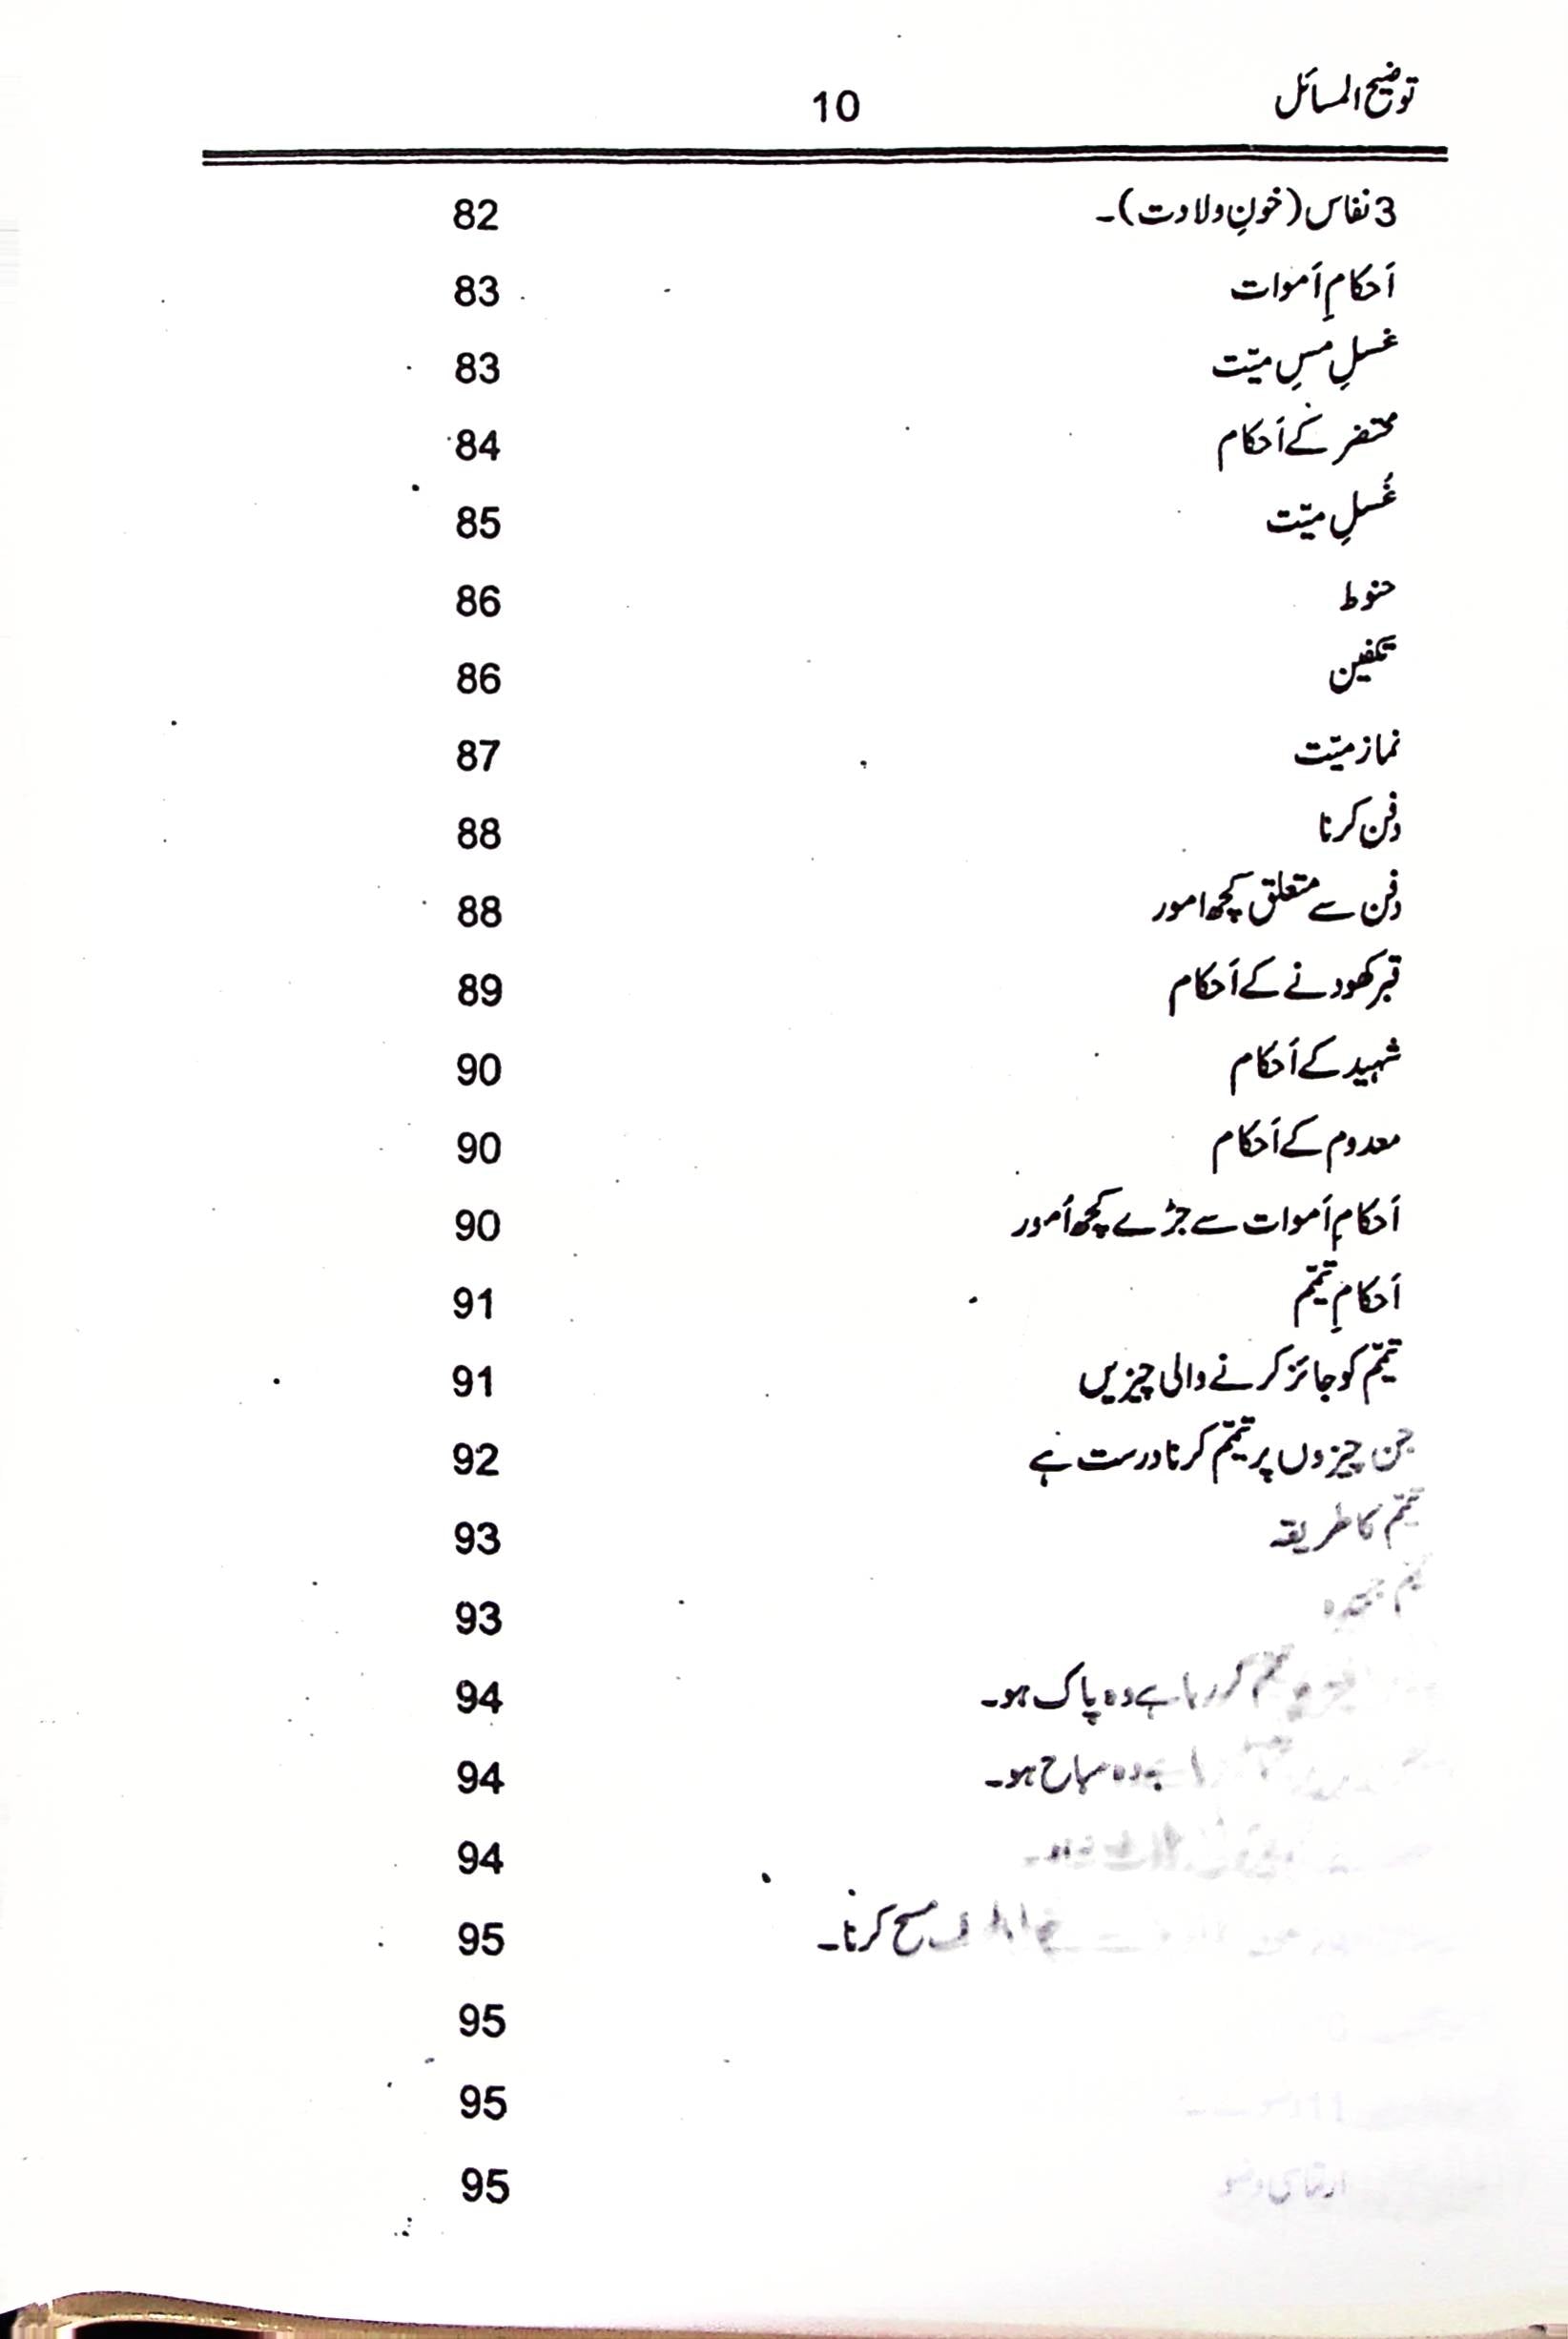 توضیح المسائل 10
3 نفاس (خونِ ولادت)۔ 82
اَحکامِ اَموات 83
غسلِ مسِ میّت 83
محتضر کے اَحکام 84
غُسلِ میّت 85
حنوط 86
تکفین 86
نماز میّت 87
دفن کرنا 88
دفن سے متعلق کچھ امور 88
قبر کھودنے کے اَحکام 89
شہید کے اَحکام 90
معدوم کے اَحکام 90
اَحکامِ اَموات سے جڑے کچھ اُمور 90
اَحکامِ تیمّم 91
تیمّم کو جائز کرنے والی چیزیں 91
جن چیزوں پر تیمّم کرنا درست ہے 92
تیمّم کا طریقہ 93
93
تیمم کر رہا ہے وہ پاک ہو۔ 94
ہے وہ مباح ہو۔ 94
94
مسح کرنا۔ 95
95
95
95